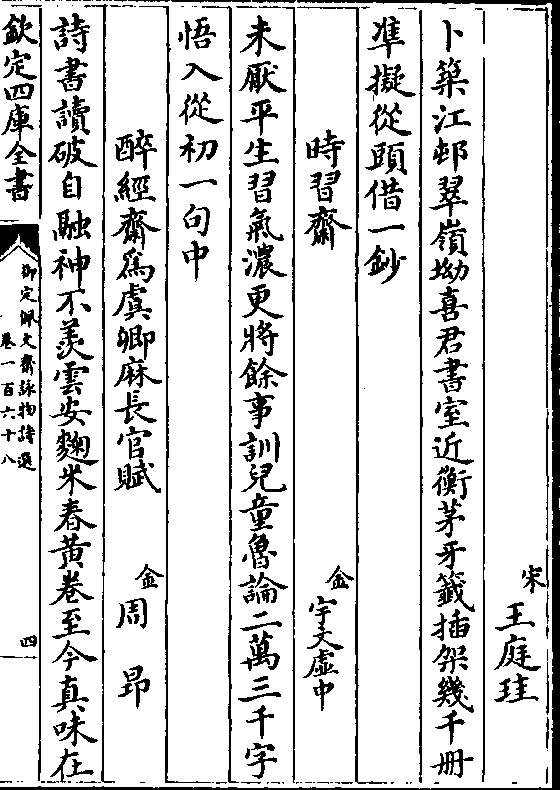 宋　王庭珪
卜築江郵翠嶺坳喜君書室近衡茅牙籤插架幾千册
凖擬從頭借一鈔
時習齋　金　宇文虛中
未厭平生習氣濃更將餘事訓兒童魯論二萬三千字
悟入從初一句中
醉經齋為虞卿麻長官賦　金　周昂
詩書讀破自融神不羨雲安麴米春黃卷至今真味在
欽定四庫全書
御定佩文齋詠物詩選
卷一百六十八
四